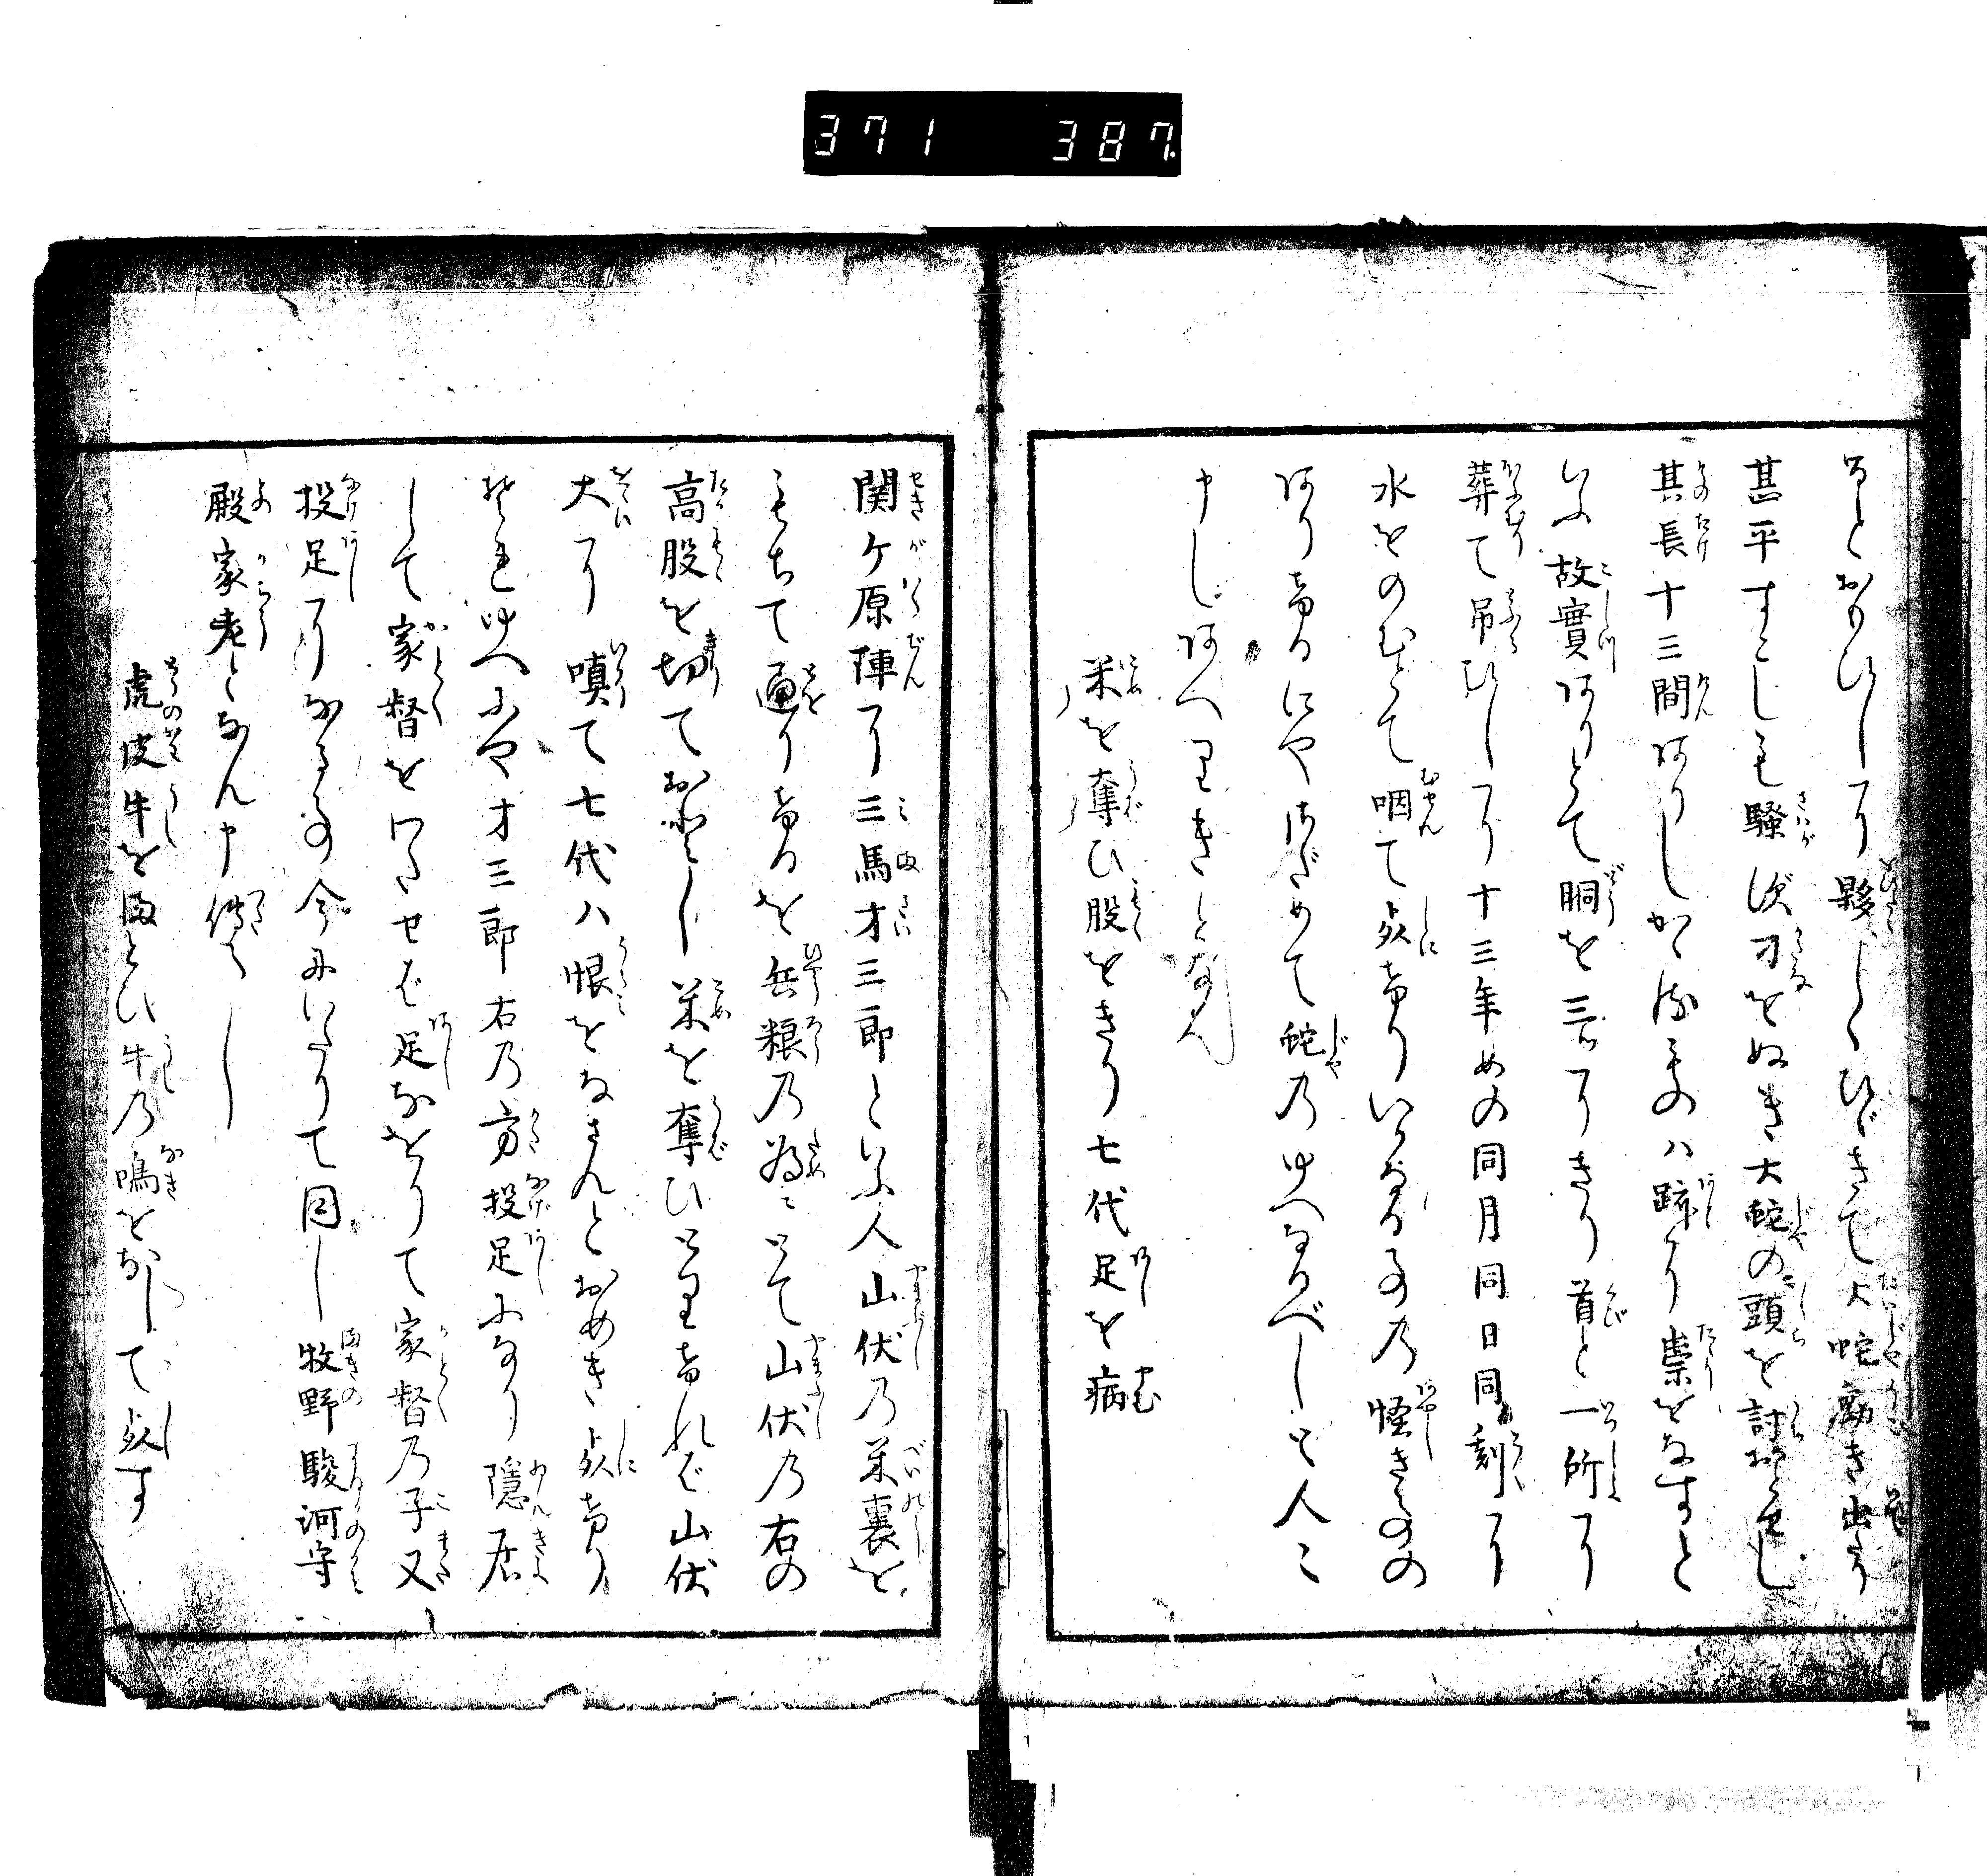 371 387
るとおもひしに夥しくひゞきて大蛇動き出たり
甚平すこしも騒がず刀をぬき大蛇の頭を討おとせし
其長十三間ありしがかゝるものハ跡に祟をなすと
いふ故實ありとて胴を三にきり首と一所に
葬て吊ひしに十三年めの同月同日同刻に
水をのむとて咽て死けりいかなる事の怪きものの
ありけるにやはだめて蛇乃ゆへなるべしと人々
申しあへりきとなん
米を奪ひ股をきり七代足を病
関ケ原陣に三馬才三郎といふ人山伏乃米裏を
もちて通りけるを兵粮乃為とて山伏乃右の
高股を切ておとし米を奪ひとりけれバ山伏
大に嗔て七代ハ恨をなさんとおめき死けり
それゆへにや才三郎右乃方投足になり隠居
して家督をわたせば足なをりて家督乃子又
投足になる事今にいたりて同し牧野駿河守
殿家老となん申傳へし
虎皮牛をまとひ牛乃鳴をなして死す